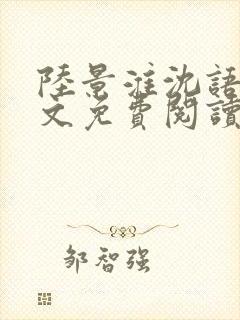 陸景淮沈語
文免費閱讀
邹智强